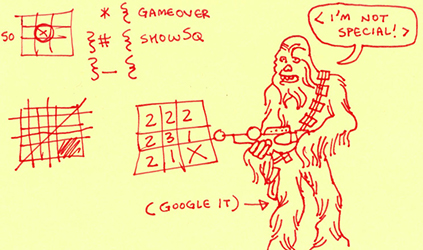 * { GAMEOVER
50
} # { SHOWSQ
} _ {
< I'M NOT
SPECIAL! >
2 2 2
2 3 1
2 1 X
(GOOGLE IT) →